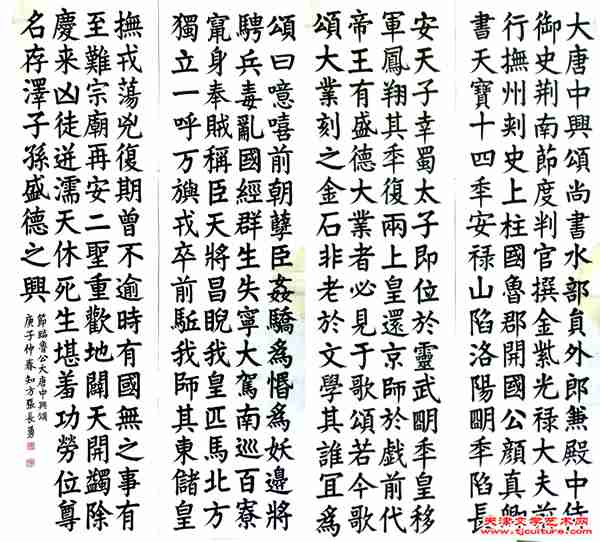 大唐中興頌尚書水部員外郎兼殿中侍
御史荆南節度判官撰金紫光禄大夫前
行撫州刾史上柱國魯郡開國公顔真卿
書天寶十四秊安禄山陷洛陽朙秊陷長
安天子幸蜀太子即位於靈武朙秊皇移
軍鳳翔其秊復兩上皇還京師於戲前代
帝王有盛德大業者必見于歌頌若今歌
頌大業刻之金石非老於文學其誰宜為
頌曰噫嘻前朝孽臣姦驕為惛為妖邊將
騁兵毒亂國經群生失寧大駕南巡百寮
竄身奉賊稱臣天將昌睨我皇匹馬北方
獨立一呼万旟戎卒前駈我師其東儲皇
撫戎蕩兇復期曾不逾時有國無之事有
至難宗廟再安二聖重歡地闢天開蠲除
慶来凶徒逆濡天休死生堪羞功勞位尊
名存澤子孫盛德之興
節臨魯公大唐中興頌
庚子仲春知方張長勇
天津文学艺术网
www.tjculture.com